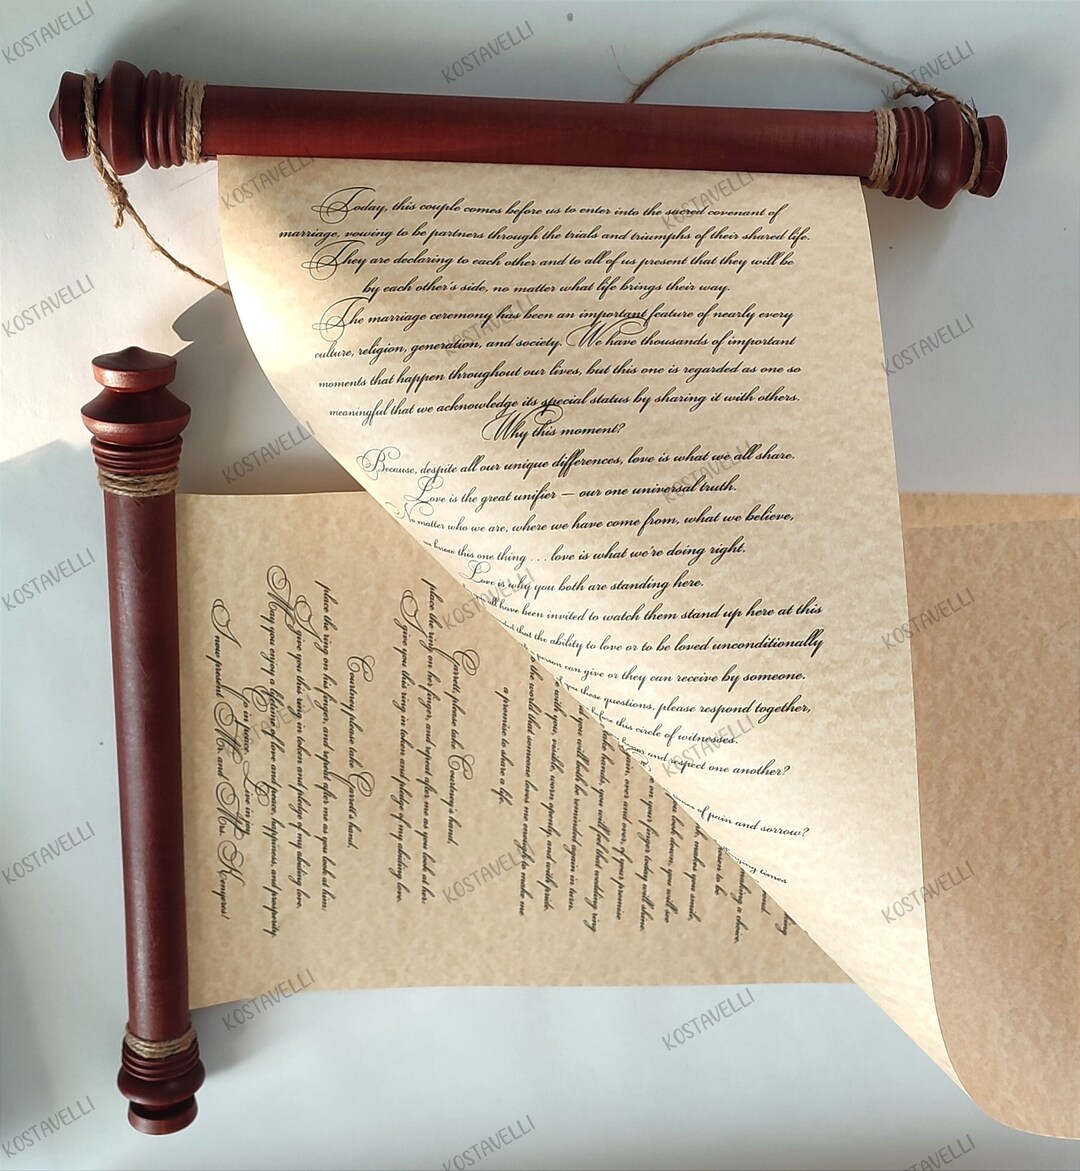 Today, this couple comes before us to enter into the sacred covenant of
marriage, vowing to be partners through the trials and triumphs of their shared life.
They are declaring to each other and to all of us present that they will be
by each other's side, no matter what life brings their way.
The marriage ceremony has been an important feature of nearly every
culture, religion, generation, and society. We have thousands of important
moments that happen throughout our lives, but this one is regarded as one so
meaningful that we acknowledge its special status by sharing it with others.
Why this moment?
Because, despite all our unique differences, love is what we all share.
Love is the great unifier – our one universal truth.
No matter who we are, where we have come from, what we believe,
we know this one thing . . . love is what we're doing right.
Love is why you both are standing here.
all have been invited to watch them stand up here at this
that the ability to love or to be loved unconditionally
person can give or they can receive by someone.
you these questions, please respond together,
before this circle of witnesses.
honor and respect one another?
of pain and sorrow?
times
making a choice.
person to be
you look down, you will see
on your finger today will shine.
again, over and over, of your promise
take hands, you will feel that wedding ring
you will both be reminded again in turn.
with you, visible, worn openly, and with pride.
the world that someone loves me enough to make me
a promise to share a life.
Garrett, please take Courtney's hand,
place the ring on her finger, and repeat after me as you look at her:
I give you this ring in token and pledge of my abiding love.
Courtney please take Garrett's hand,
place the ring on his finger, and repeat after me as you look at him:
I give you this ring in token and pledge of my abiding love.
May you enjoy a lifetime of love and peace, happiness, and prosperity.
Go in peace. Live in joy.
I now present Mr. and Mrs.
KOSTAVELLI